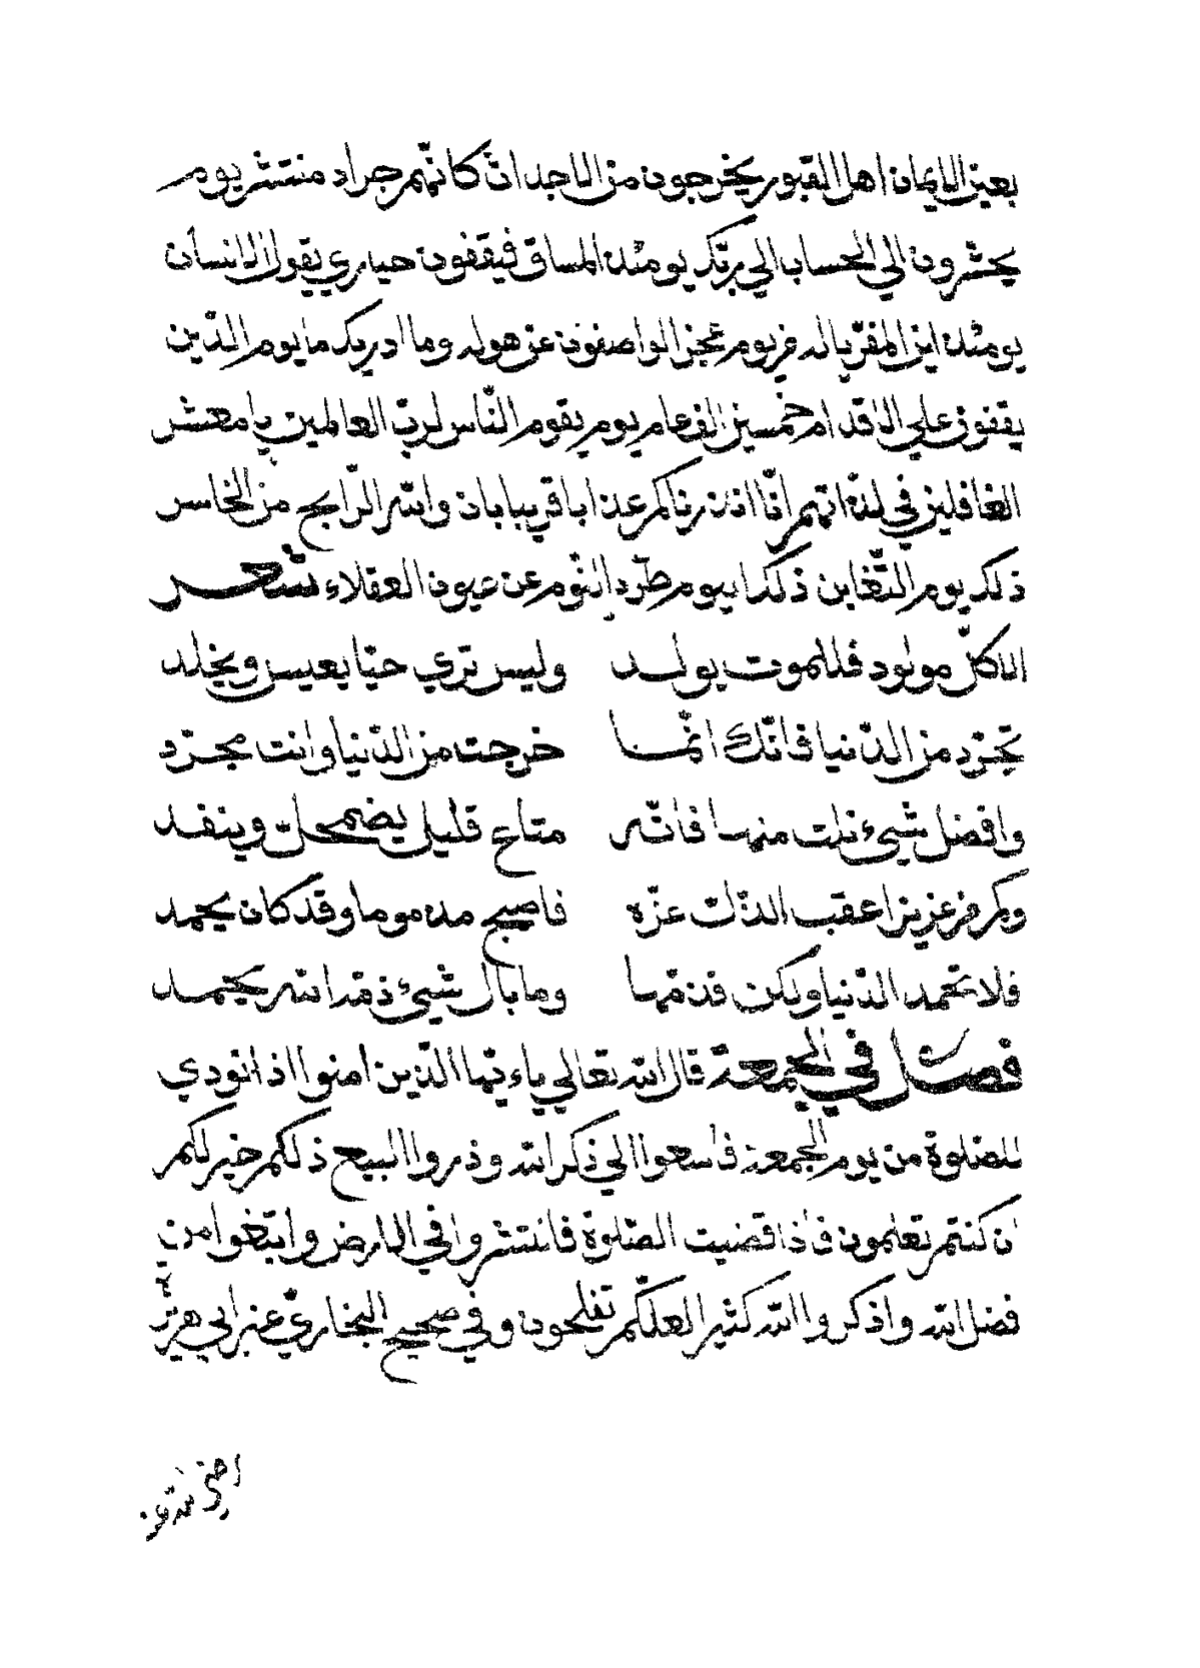 بعين الايمان اهل القبور يخرجون من الاجداث كانّهم جراد منتشر يوم
يحشرون الي الحساب الي ربّك يومئذ المساق فيقفون حياري يقول الانسان
يومئذ اين المفرّ ياله من يوم عجز الواصفون عن هوله وما ادريك ما يوم الدّين
يقفون علي الاقدام خمسين الف عام يوم يقوم النّاس لربّ العالمين يامعشر
الغافلين في لذّاتهم انّا انذرناكم عذابا قريبا بان والله الرّابح من الخاسر
ذلك يوم التّغابن ذلك اليوم طرد النّوم عن عيون العقلاء شعر
الا كلّ مولود فللموت يولد وليس تري حيّا يعيش ويخلد
تجرّد من الدّنيا فانّك انّما خرجت من الدّنيا وانت مجرّد
وافضل شيئ نلت منها فانّه متاع قليل يضمحلّ وينفد
وكم من عزيز اعقب الذّلّ عزّه فاصبح مذموما وقد كان يحمد
فلا تحمد الدّنيا ولكن فذمّها وما بال شيئ ذمّه الله يحمد
فصل في الجمعة قال الله تعالي ياءيّها الّذين امنوا اذا نودي
للصّلوة من يوم الجمعة فاسعوا الي ذكر الله وذروا البيع ذلكم خير لكم
ان كنتم تعلمون فاذا قضيت الصّلوة فانتشروا في الارض وابتغوا من
فضل الله واذكروا الله كثيرا لعلّكم تفلحون وفي صحيح البخاريّ عن ابي هريرة
رضي الله عنه